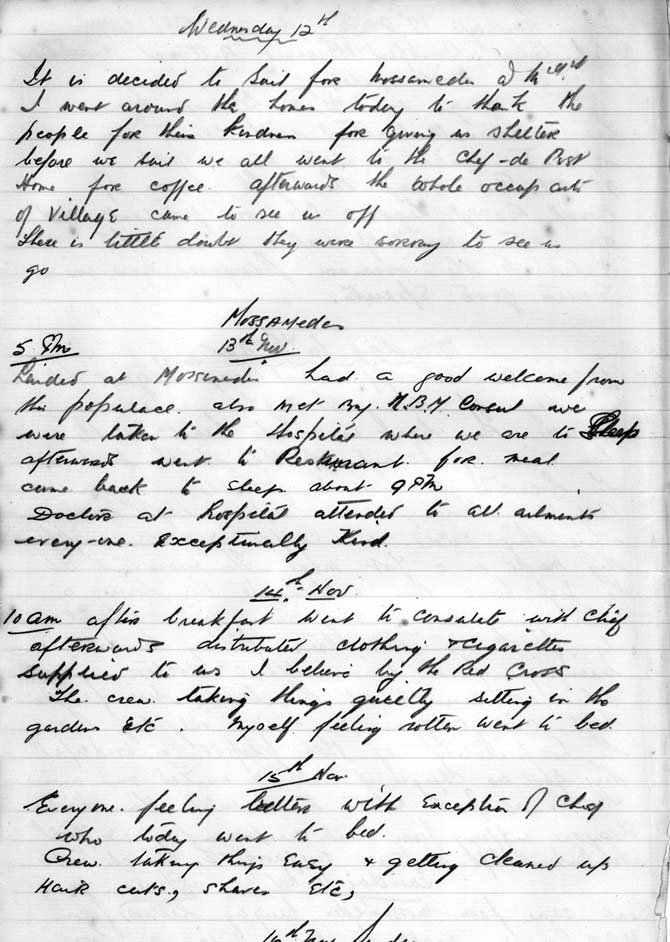 Wednesday 12th
It is decided to sail for Mossamedes at
I went around the homes today to thank the
people for their kindness for giving us shelter
before we sail we all went to the Chef-de Post
Home for coffee. afterwards the whole occupants
of Village came to see us off
There is little doubt they were sorrory to see us
go
Mossamedes
5. PM 13th Nov.
Landed at Mossamedes had a good welcome from
the populace. also met by H.B.M. Consul we
were taken to the Hospital where we are to Sleep
afterwards went to Restaurant for meal
came back to sleep about 9 PM
Doctors at hospital attended to all ailments
every-one. Exceptionally Kind.
14th Nov
10 am after breakfast went to consulate with Chief
afterwards distributed clothing & cigarettes
supplied to us I believe by the Red Cross
The crew taking things quietly sitting in the
gardens Etc. Myself feeling rotten went to bed
15th Nov.
Everyone feeling better with Exception of Chief
who today went to bed.
Crew taking things Easy & getting cleaned up
Hair cuts, shaves Etc,